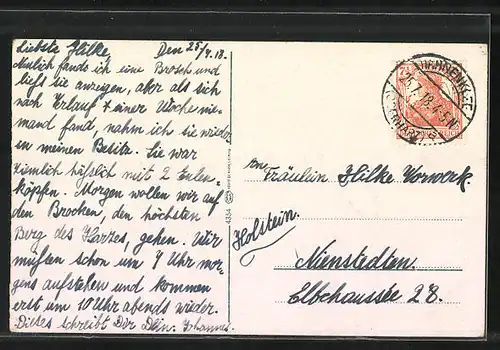 Liebste Hilke, Den 25/7.18.
Neulich fand ich eine Brosch und
ließ sie anzeigen, aber als sich
nach Erlauf einer Woche nie-
mand fand, nahm ich sie wieder
in meinen Besitz. Sie war
ziemlich häßlich mit 2 Eulen-
köpfen. Morgen wollen wir auf
den Brocken, den höchsten
Berg des Harzes, gehen. Wir
müßten schon um 4 Uhr mor-
gens aufstehen und kommen
erst um 10 Uhr abends wieder.
Dieses schreibt Dir Dein Johannes.
4334
HAHNENKLEE
(OBERHARZ)
7½
Fräulein Hilke Vorwerk.
Holstein.
Nienstedten.
Elbchaussée 28.